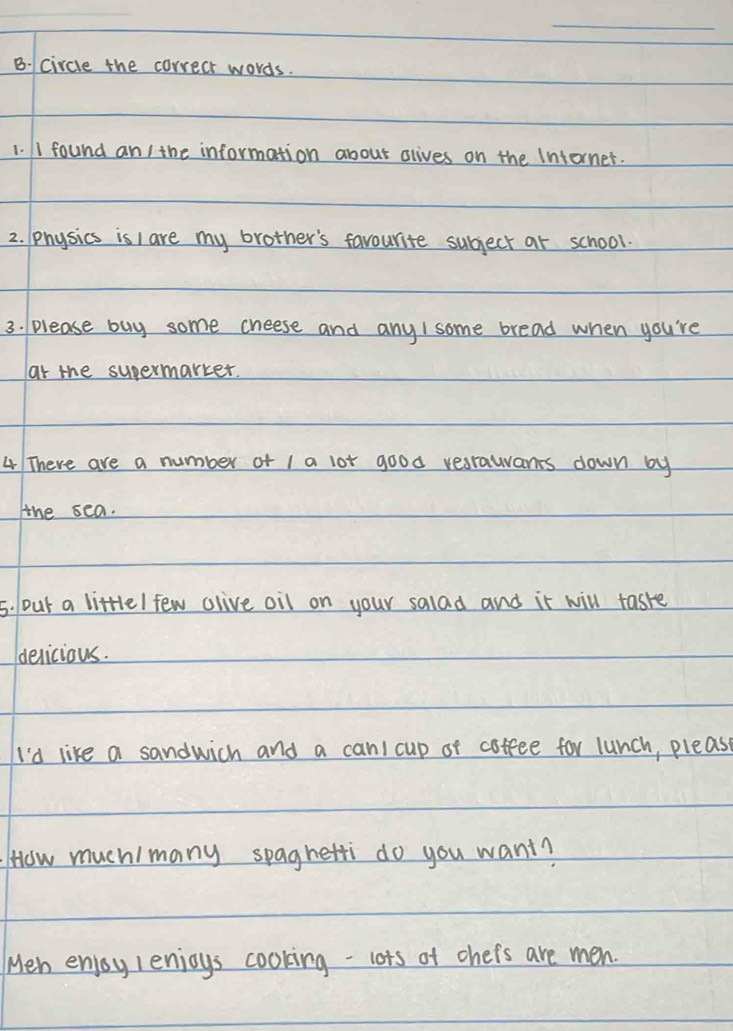 B. Circle the correct words.
1. I found an / the information about olives on the Internet.
2. Physics is / are my brother's favourite subject at school.
3. Please buy some cheese and any / some bread when you're
at the supermarket.
4 There are a number of / a lot good restaurants down by
the sea.
5. Put a little / few olive oil on your salad and it will taste
delicious.
I'd like a sandwich and a can / cup of coffee for lunch, please
. How much / many spaghetti do you want?
Men enjoy / enjoys cooking - lots of chefs are men.